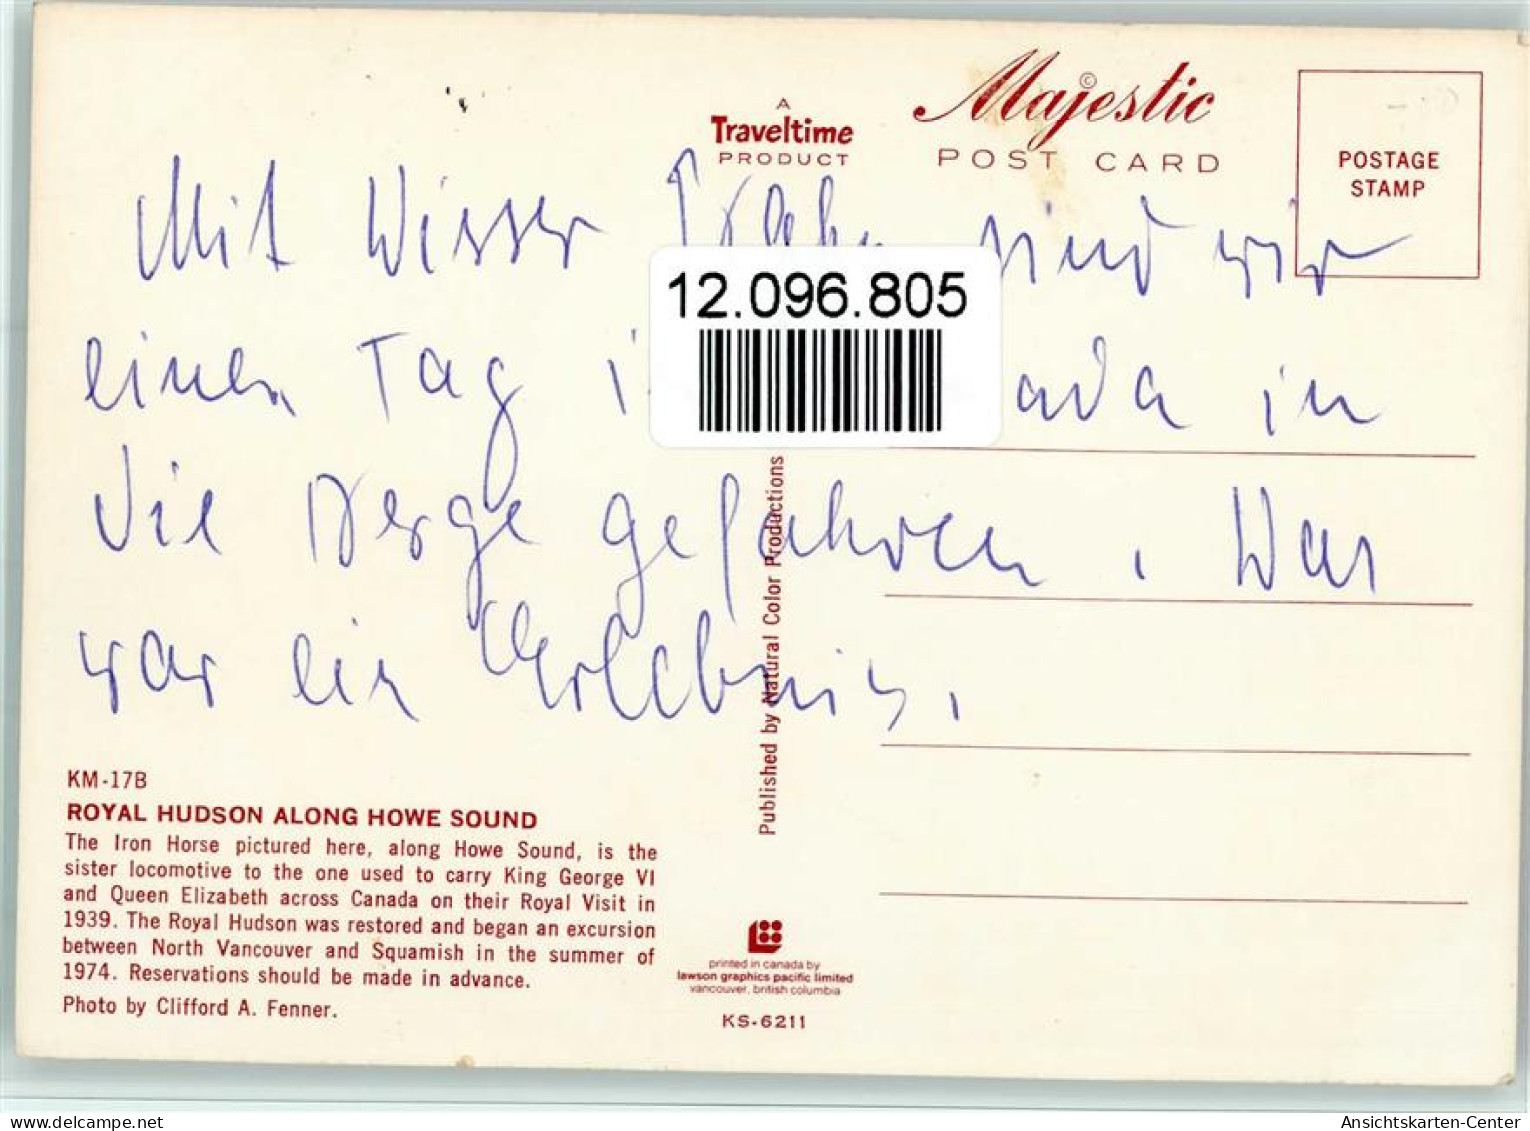 A
Traveltime
PRODUCT
Majestic ©
POST CARD
POSTAGE
STAMP
Mit Wisser Bahn sind wir
12.096.805
einen Tag i ada in
die Berge gefahren. War
war ein Erlebnis.
Published by Natural Color Productions
KM-17B
ROYAL HUDSON ALONG HOWE SOUND
The Iron Horse pictured here, along Howe Sound, is the
sister locomotive to the one used to carry King George VI
and Queen Elizabeth across Canada on their Royal Visit in
1939. The Royal Hudson was restored and began an excursion
between North Vancouver and Squamish in the summer of
1974. Reservations should be made in advance.
Photo by Clifford A. Fenner.
printed in canada by
lawson graphics pacific limited
vancouver, british columbia
KS-6211
www.delcampe.net
Ansichtskarten-Center